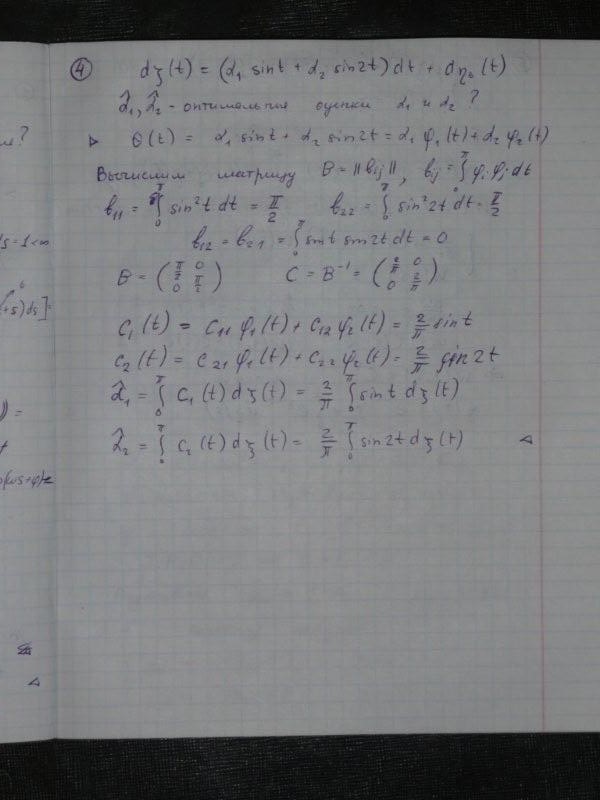 ④ dξ(t) = (α₁ sin t + α₂ sin 2t) dt + dη₀(t)
α̂₁, α̂₂ - оптимальные оценки α₁ и α₂ ?
▷ θ(t) = α₁ sin t + α₂ sin 2t = α₁ φ₁(t) + α₂ φ₂(t)
Вычислим матрицу B = ||bij||, bij = ∫₀^π φi φj dt
b₁₁ = ∫₀^π sin² t dt = π/2 b₂₂ = ∫₀^π sin² 2t dt = π/2
b₁₂ = b₂₁ = ∫₀^π sin t sin 2t dt = 0
B = (π/2 0 0 π/2) C = B⁻¹ = (2/π 0 0 2/π)
c₁(t) = c₁₁ φ₁(t) + c₁₂ φ₂(t) = 2/π sin t
c₂(t) = c₂₁ φ₁(t) + c₂₂ φ₂(t) = 2/π sin 2t
α̂₁ = ∫₀^π c₁(t) dξ(t) = 2/π ∫₀^π sin t dξ(t)
α̂₂ = ∫₀^π c₂(t) dξ(t) = 2/π ∫₀^π sin 2t dξ(t) ◁